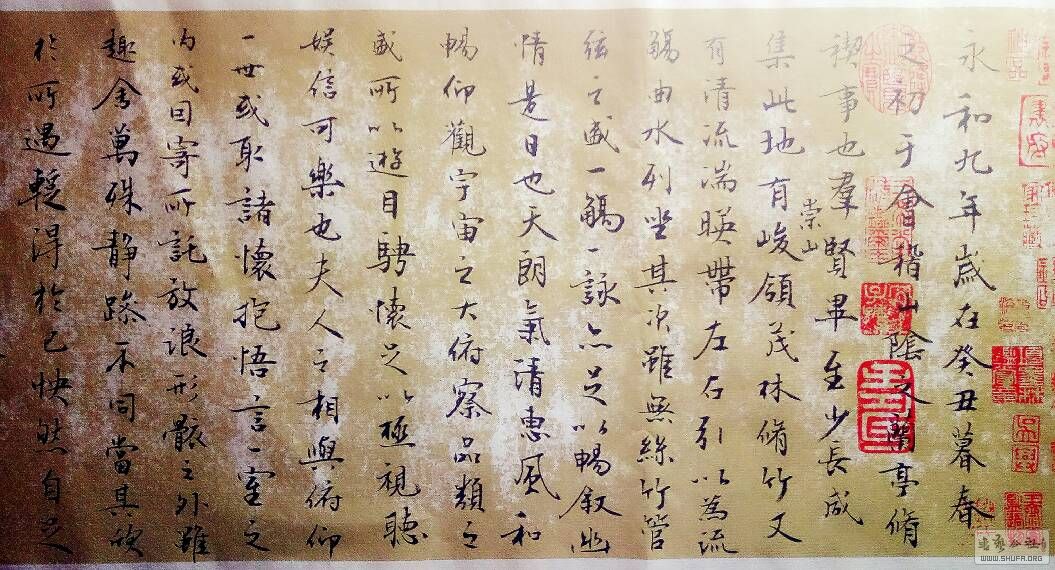 永和九年歲在癸丑暮春
之初于會稽山陰之蘭亭脩
禊事也羣賢畢至少長咸
集此地有崇山峻領茂林脩竹又
有清流湍暎帶左右引以為流
觴曲水列坐其次雖無絲竹管
弦之盛一觴一詠亦足以暢叙幽
情是日也天朗氣清惠風和
暢仰觀宇宙之大俯察品類之
盛所以遊目騁懷足以極視聽
娱信可樂也夫人之相與俯仰
一世或取諸懷抱悟言一室之
內或因寄所託放浪形骸之外雖
趣舍萬殊静躁不同當其欣
於所遇蹔得於己快然自足
WWW.SHUFA.ORG